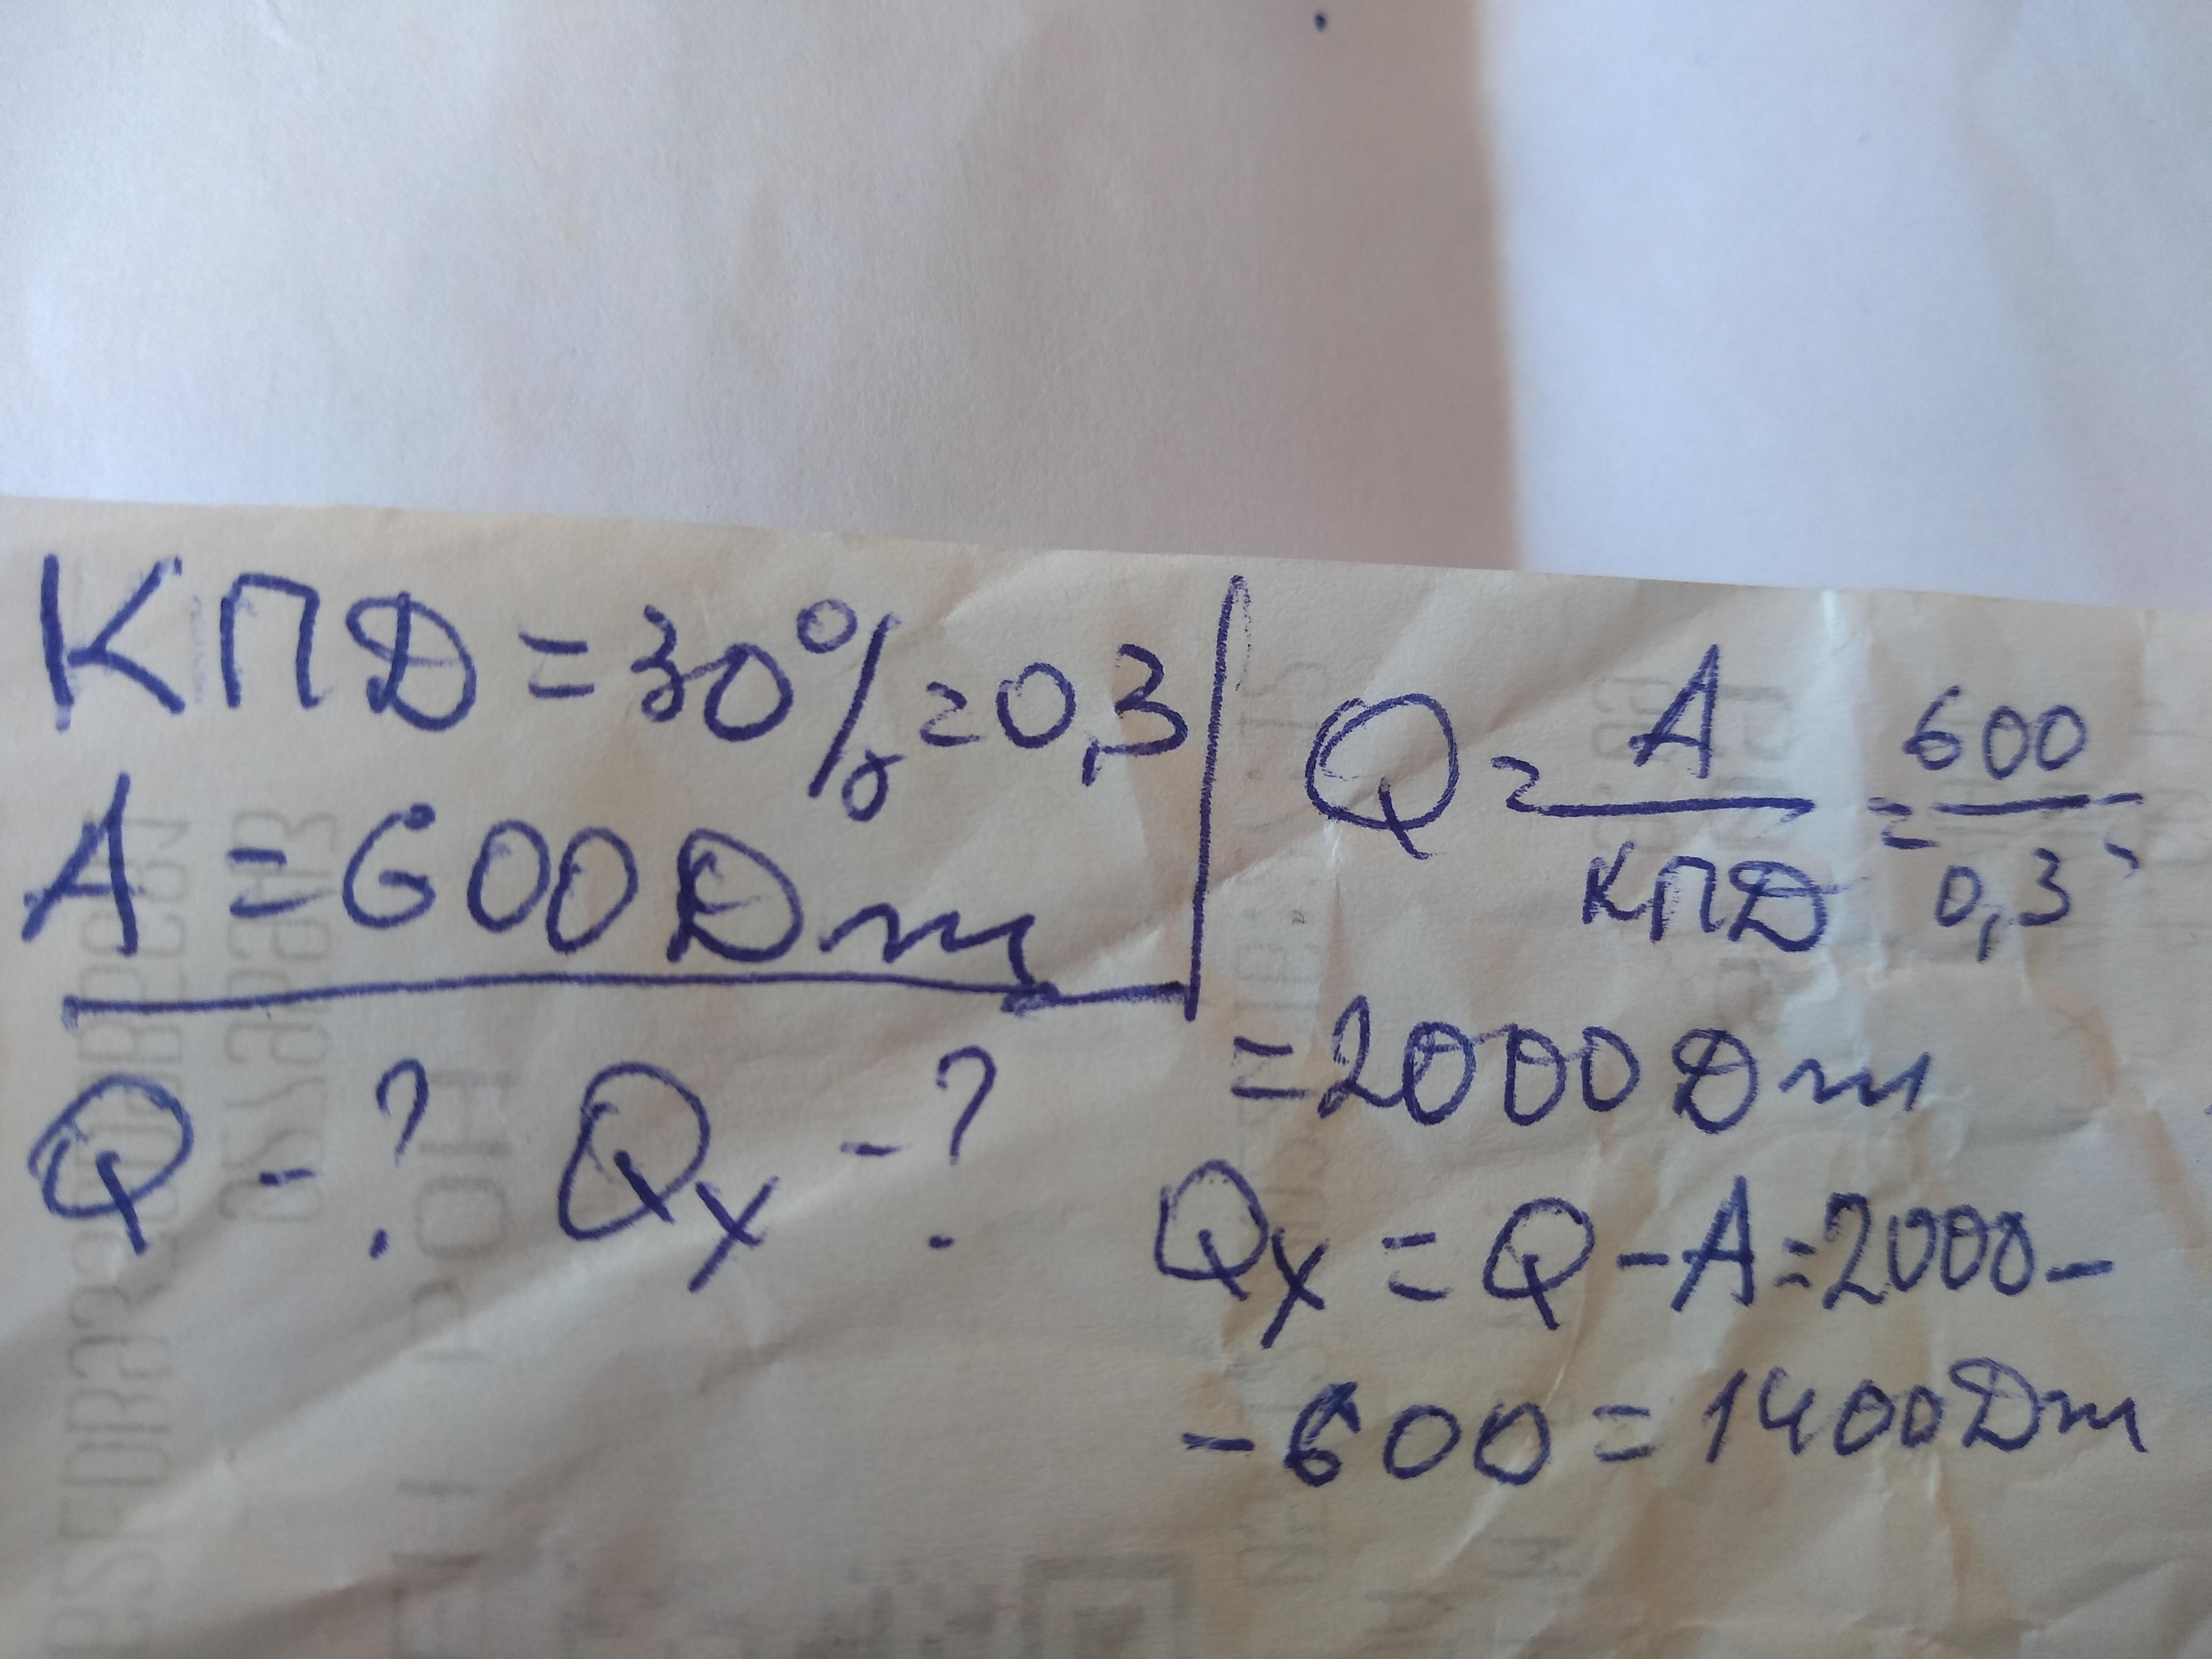 КПД = 30% = 0,3
A = 600 Дж
Q - ? Qx - ?
Q = A/КПД = 600/0,3 =
= 2000 Дж
Qx = Q - A = 2000 -
- 600 = 1400 Дж